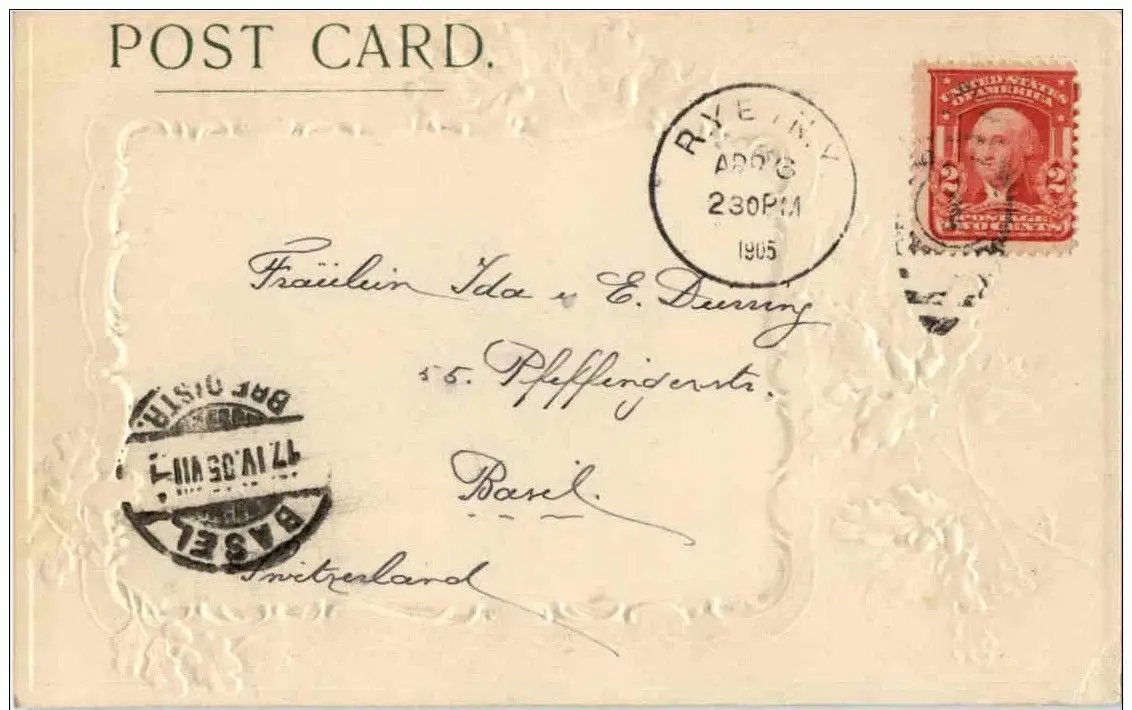 POST CARD.
RYE, N.Y.
APR 6
230PM
1905
UNITED STATES
OF AMERICA
2 2
POSTAGE
TWO CENTS
Fräulein Ida u. E. Durring
55. Pfeffingerstr.
Basel.
Switzerland
BRF. DISTR.
17.IV.05 VIII
BASEL